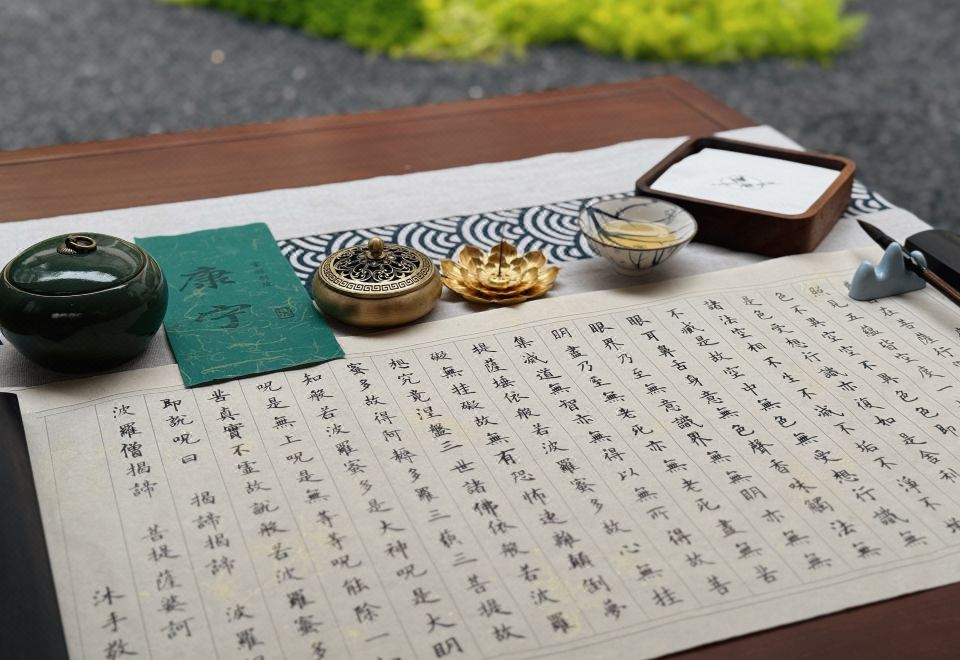 在菩薩行
照見五蘊皆空度一
色不異空空不異色色即
是色受想行識亦復如是舍利
諸法空相不生不滅不垢不淨不
不滅是故空中無色無受想行識無
眼耳鼻舌身意無色聲香味觸法無
眼界乃至無意識界無無明亦無無
明盡乃至無老死亦無老死盡無苦
集滅道無智亦無得以無所得故菩
提薩埵依般若波羅蜜多故心無挂
礙無挂礙故無有恐怖遠離顛倒夢
想究竟涅盤三世諸佛依般若波羅
蜜多故得阿耨多羅三藐三菩提故
知般若波羅蜜多是大神呪是大明
呪是無上呪是無等等呪能除一
苦真實不虛故說般若波羅蜜多
即說呪曰 揭諦揭諦 波羅
波羅僧揭諦 菩提薩婆訶
沐手敬
康寧